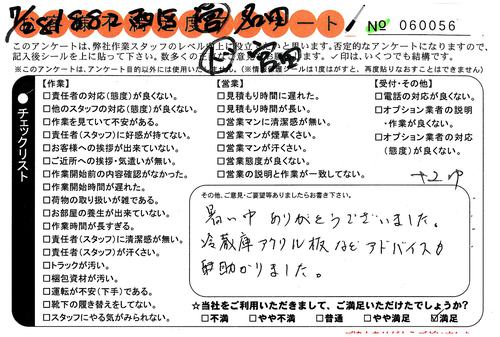 ート № 060056
このアンケートは、弊社作業スタッフのレベル向上に役立てたいと思います。否定的なアンケートになりますので、
記入後シールを上に貼って下さい。
✓印は、いくつでも結構です。
※このアンケートは、アンケート目的以外には使用いたしません。
●チェックリスト
【作業】
□責任者の対応(態度)が良くない。
□他のスタッフの対応(態度)が良くない。
□作業を見ていて不安がある。
□責任者(スタッフ)に好感が持てない。
□お客様への挨拶が出来ていない。
□ご近所への挨拶・気遣いが無い。
□作業開始前の内容確認がなかった。
□作業開始時間が遅れた。
□荷物の取り扱いが雑である。
□お部屋の養生が出来ていない。
□作業時間が長すぎる。
□責任者(スタッフ)に清潔感が無い。
□責任者(スタッフ)が汗くさい。
□トラックが汚い。
□梱包資材が汚い。
□運転が不安(下手)である。
□靴下の履き替えをしてない。
□スタッフにやる気がみられない。
【営業】
□見積もり時間に遅れた。
□見積もり時間が長い。
□営業マンに清潔感が無い。
□営業マンが煙草くさい。
□営業マンが汗くさい。
□営業態度が良くない。
□営業の説明と作業が一致してない。
【受付・その他】
□電話の対応が良くない。
□オプション業者の説明
・作業が良くない。
□オプション業者の対応
(態度)が良くない。
その他、ご意見・ご要望等ありましたらお書き下さい。
暑い中 ありがとうございました。
冷蔵庫アクリル板など アドバイスカ
助かりました。
☆当社をご利用いただきまして、ご満足いただけたでしょうか?
□不満 □やや不満 □普通 □やや満足 ☑満足